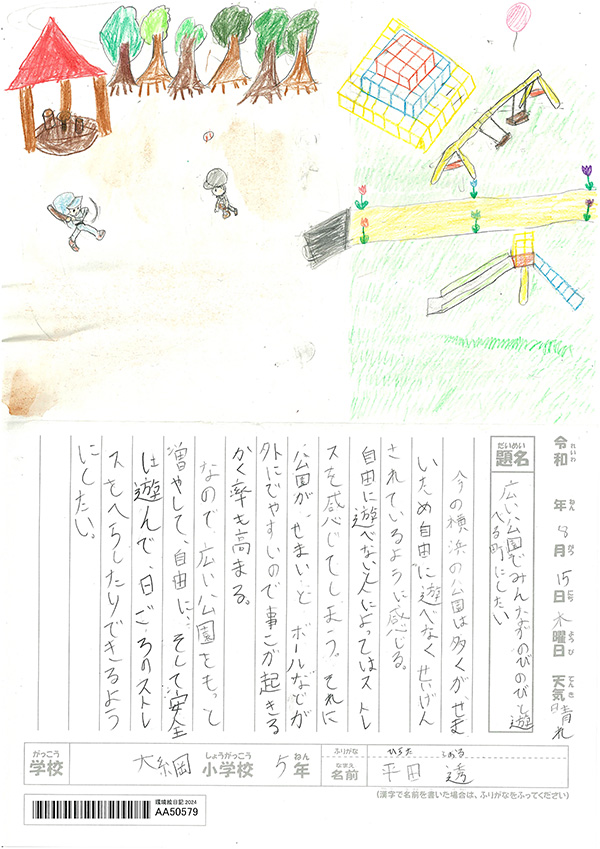 令和 年 8月 15日 木曜日 天気 晴れ
れいわ ねん がつ にち ようび てんき
だいめい
題名
広い公園でみんながのびのびと遊
べる町にしたい
今の横浜の公園は多くがせま
いため自由に遊べなくせいげん
されているように感じる。
自由に遊べない人によってはストレ
スを感じてしまう。それに
公園が、せまいとボールなどが
外にでやすいので事こが起きる
かく率も高まる。
なので広い公園をもっと
増やして、自由に、そして安全
に遊んで、日ごろのストレ
スをへらしたりできるよう
にしたい。
がっこう しょうがっこう ねん ふりがな ひらた とおる
学校 大綱 小学校 5年 なまえ 名前 平田 透
(漢字で名前を書いた場合は、ふりがなをふってください)
環境絵日記2024
AA50579